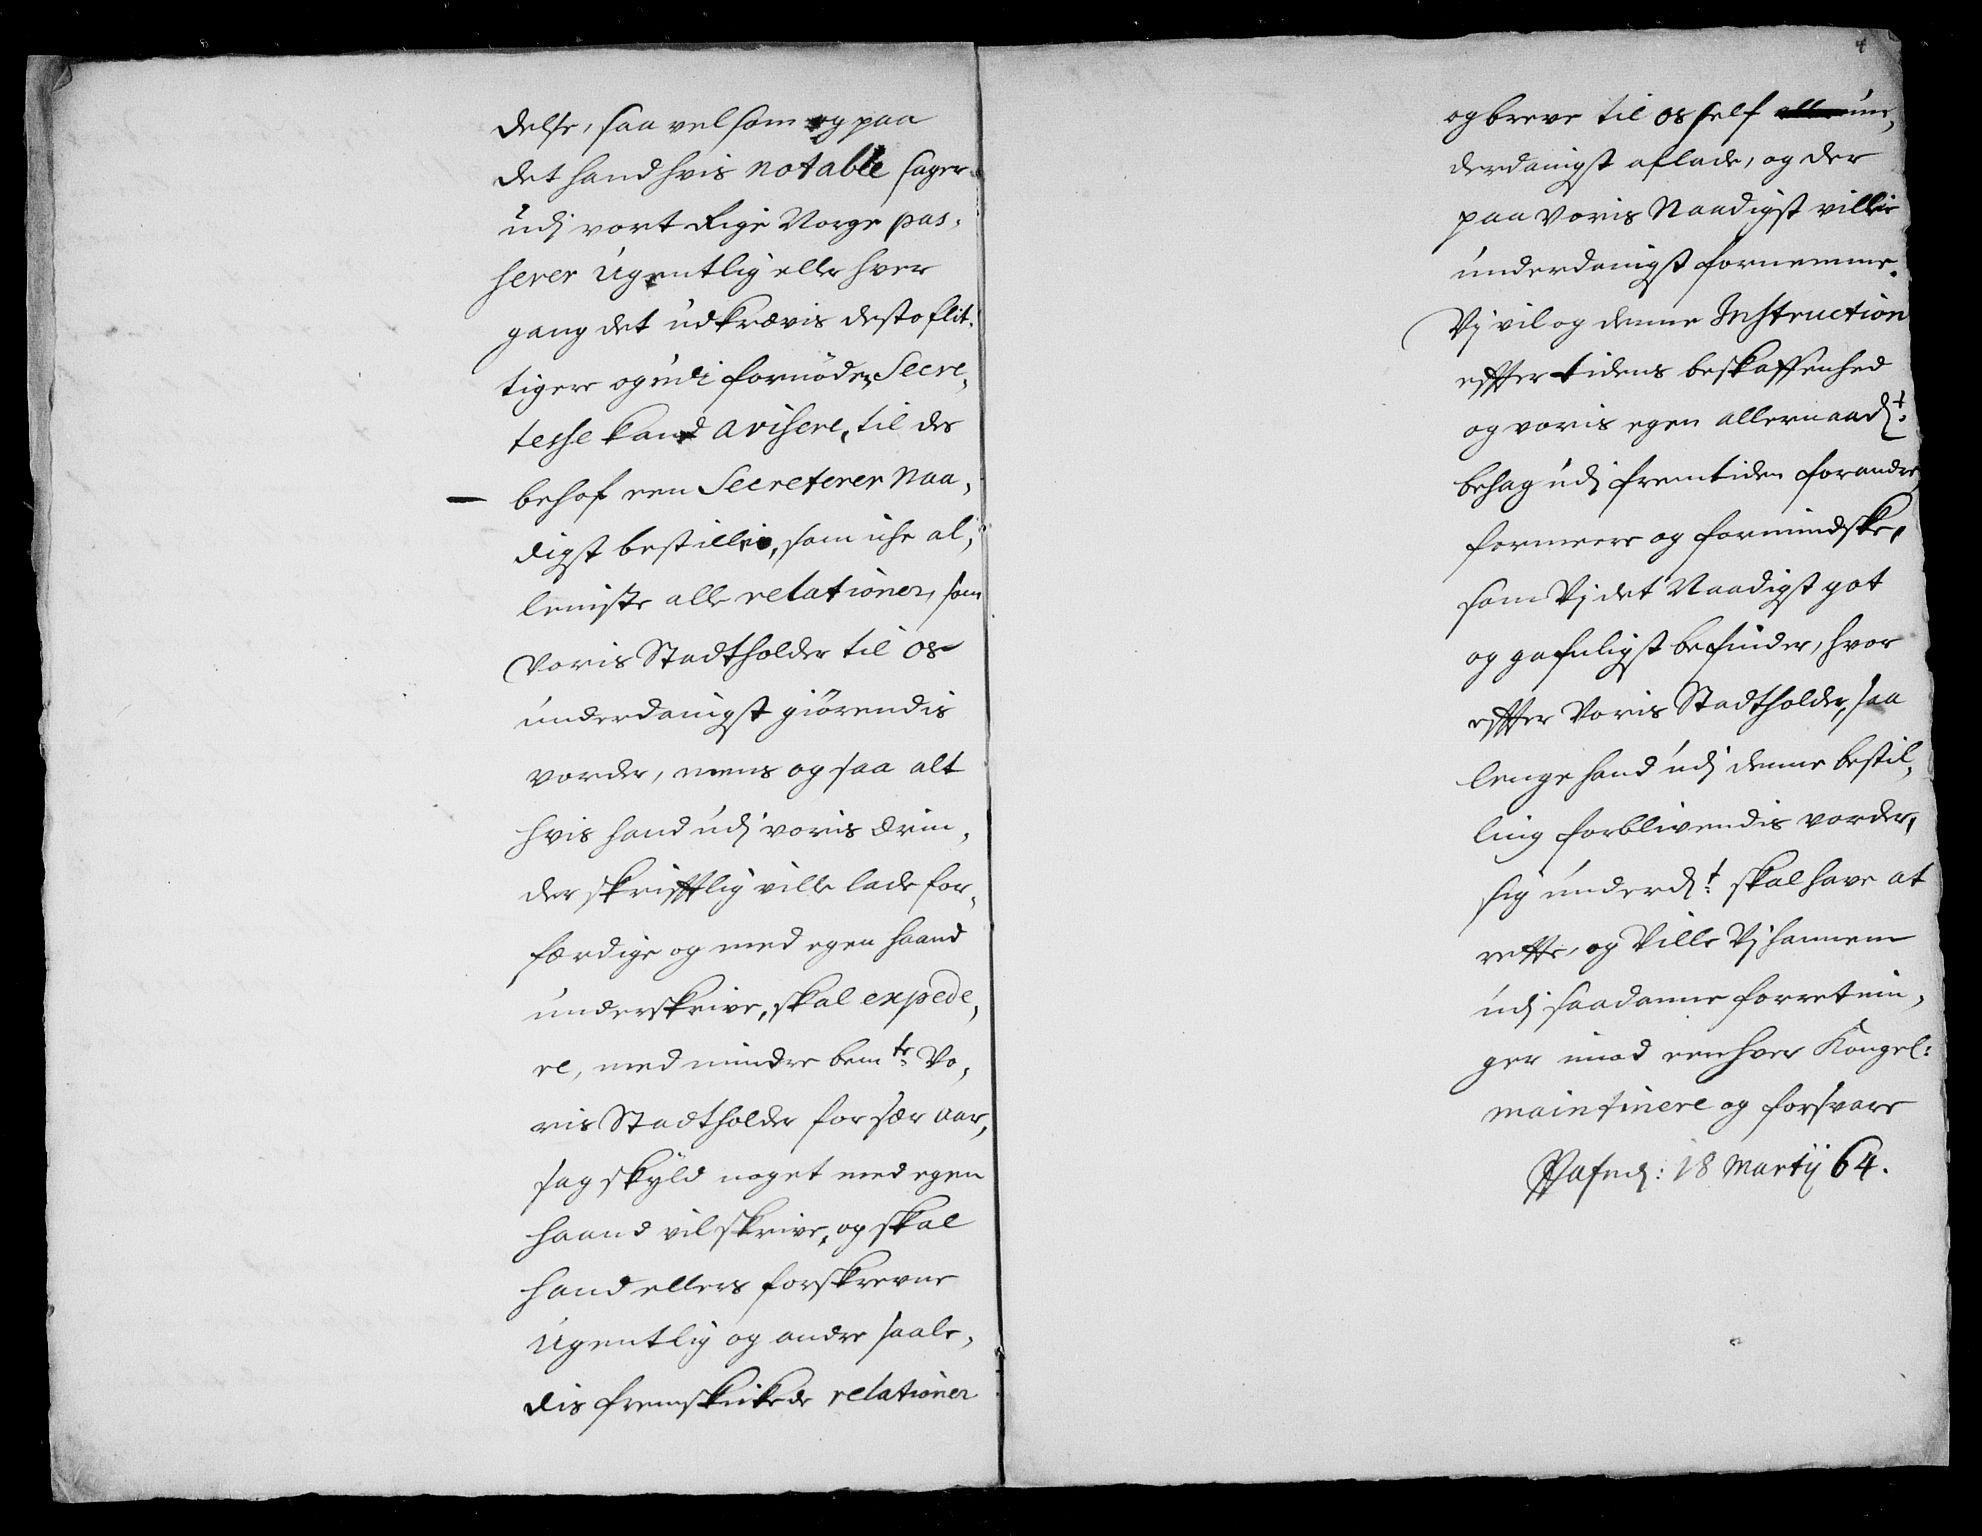 delse, saa vel som og paa
det hand hvis notable sager
udj vort Rige Norge pas,
serer Ugentlig elle hver
gang det udkrævis desto flit,
tigere og udi fornöden Secre,
tesse kand avisere, til des
behof een Secreterer Naa,
digst bestillis, som iche al,
leniste alle relationer, som
Voris Stadtholder til os
underdanigst giörendis
vorder, mens og saa alt
hvis hand udj voris Ærin,
der skrifftlig ville lade for,
færdige og med egen haand
underskrive, skal expede,
re, med mindre bem te Vo,
ris Stadtholder for sær aar,
sag skyld noget med egen
haand vil skrive, og skal
hand ellers forskrevne
Ugentlig og andre saale,
dis fremskikede relationer
4
og breve til os self un,
derdanigst aflade, og der
paa Voris Naadigst villie
underdanigst fornemme.
Vj vil og denne Instruction
effter tidens beskaffenhed
og voris egen allernaad t:
behag udj fremtiden forandre,
formeere og formindske,
som Vj det Naadigst got
og gafnligst befinder, hvor
effter Voris Stadtholder, saa
lenge hand udj denne bestil,
ling forblivendis vorder,
sig underd t: skal have at
rette, og Ville Vj hannem
udj saadanne forretnin,
ger imod eenhver Kongel:
maintinere og forsvare
Hafnd: 18 Martij 64.